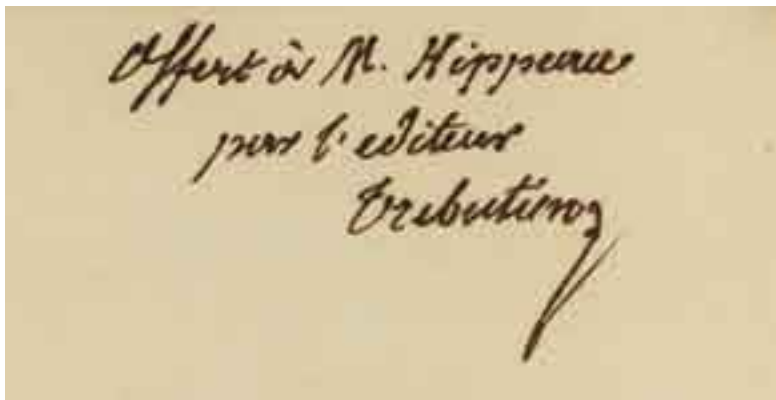 Offert à M. Hippeau
par l'editeur
Trebutien